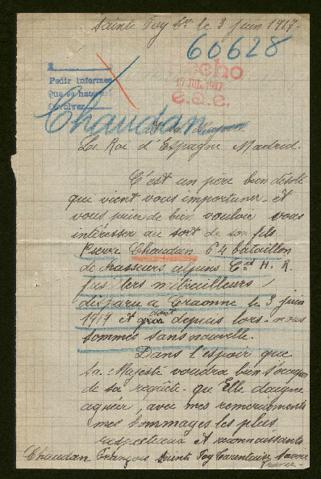 Sainte Foy le 3 juin 1917
60628
Pedir informes
Que se haga
Devolver
Hecho
JUL. 1917
Chaudan
Le Roi d'Espagne Madrid.
C'est un père bien désolé
qui vient vous importuner et
vous prier de bien vouloir vous
intéresser au sort de son fils
Pierre Chaudan 64 bataillon
de chasseurs alpins Cie H. R.
fusiliers mitrailleurs
disparu à Craonne le 3 juin
1917 et depuis lors nous
sommes sans nouvelle.
Dans l'espoir que
Sa Majesté voudra bien
de sa requête qu'Elle daigne
agréer, avec mes remerciements
mes hommages les plus
respectueux et reconnaissants
Chaudan François Sainte Foy Tarentaise Savoie
France